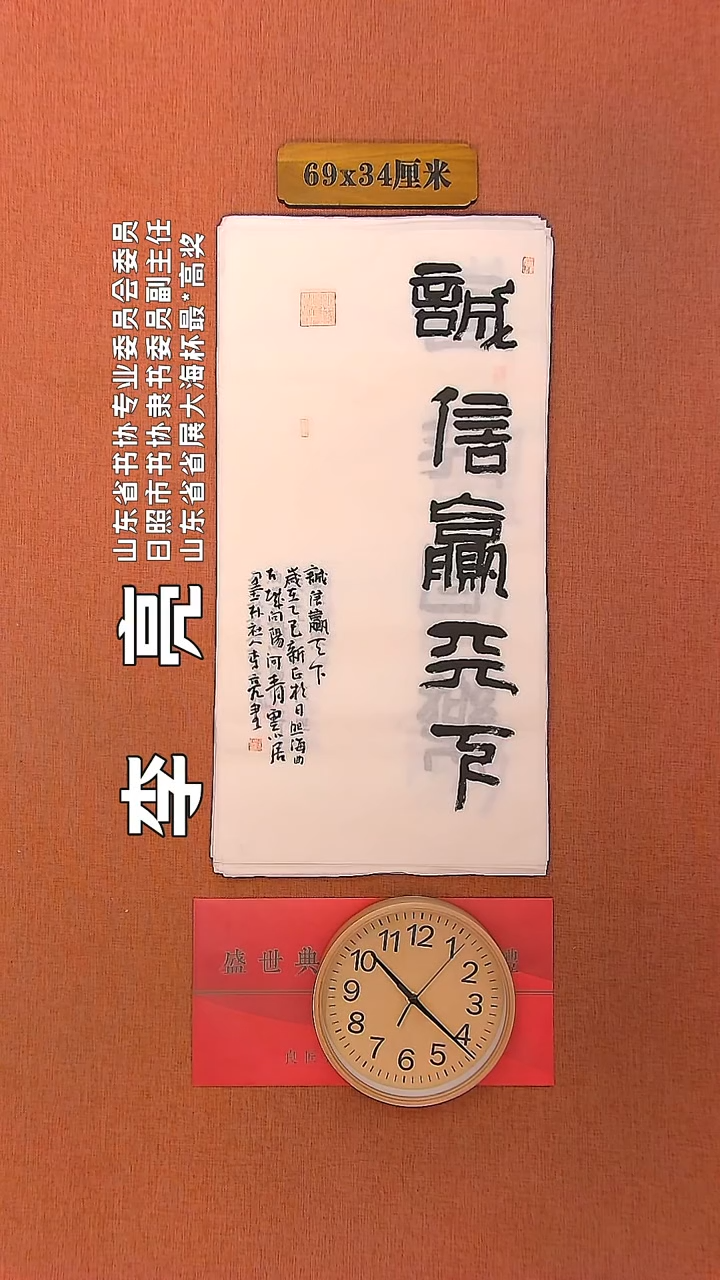 69x34厘米
誠信贏天下
誠信贏天下
歲在乙巳新正於日照海曲
古城向陽河青雲小居
李亮
山东省书协专业委员会委员
日照市书协隶书委员副主任
山东省省展大海杯最*高奖
李 亮
盛世典
12
1
2
3
4
5
6
7
8
9
10
11